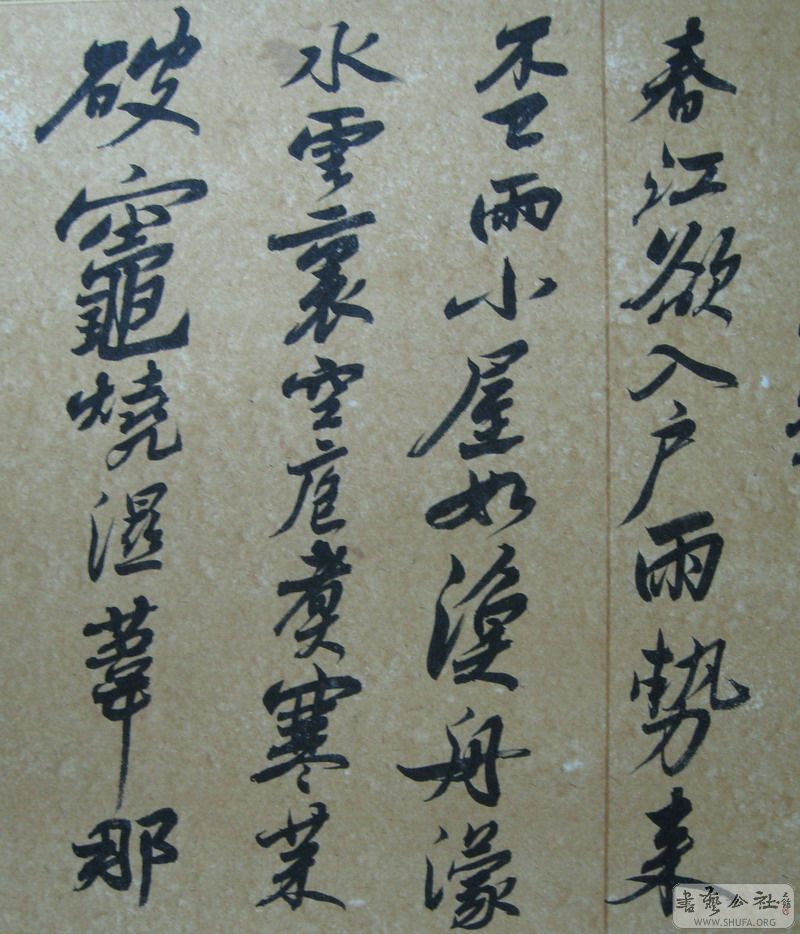 春江欲入户雨勢来
不已雨小屋如漁舟濛
水雲裏空庖煮寒菜
破竈燒濕葦那
書藝公社
WWW.SHUFA.ORG